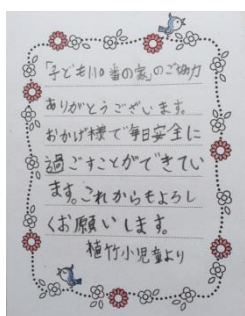 「子ども110番の家」のご協力
ありがとうございます。
おかげ様で毎日安全に
過ごすことができてい
ます。これからもよろし
くお願いします。
植竹小児童より